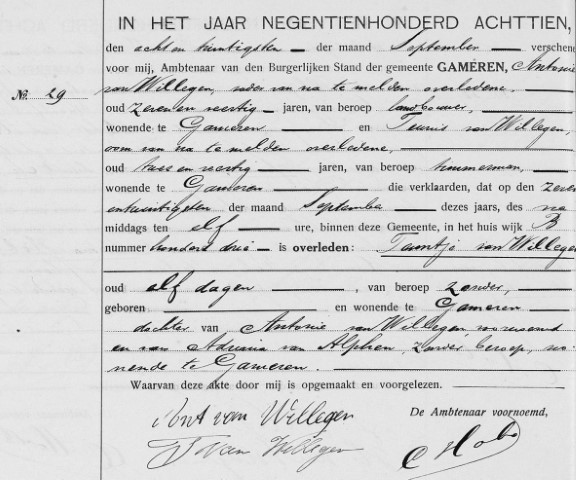 IN HET JAAR NEGENTIENHONDERD ACHTTIEN,
den acht en twintigsten der maand September verscheen
voor mij, Ambtenaar van den Burgerlijken Stand der gemeente GAMEREN, Antonie
No. 29
van Willegen, vader van na te melden overledene,
oud zeven en veertig jaren, van beroep landbouwer,
wonende te Gameren en Teunis van Willegen,
oom van na te melden overledene,
oud twee en veertig jaren, van beroep timmerman,
wonende te Gameren die verklaarden, dat op den zeven
en twintigsten der maand September dezes jaars, des na
middags ten elf ure, binnen deze Gemeente, in het huis wijk B
nummer honderd drie is overleden: Teuntje van Willegen
oud elf dagen, van beroep zonder,
geboren en wonende te Gameren
dochter van Antonie van Willegen voornoemd
en van Adriana van Alphen, zonder beroep, wo-
nende te Gameren.
Waarvan deze akte door mij is opgemaakt en voorgelezen.
Ant van Willegen
De Ambtenaar voornoemd,
T van Willegen